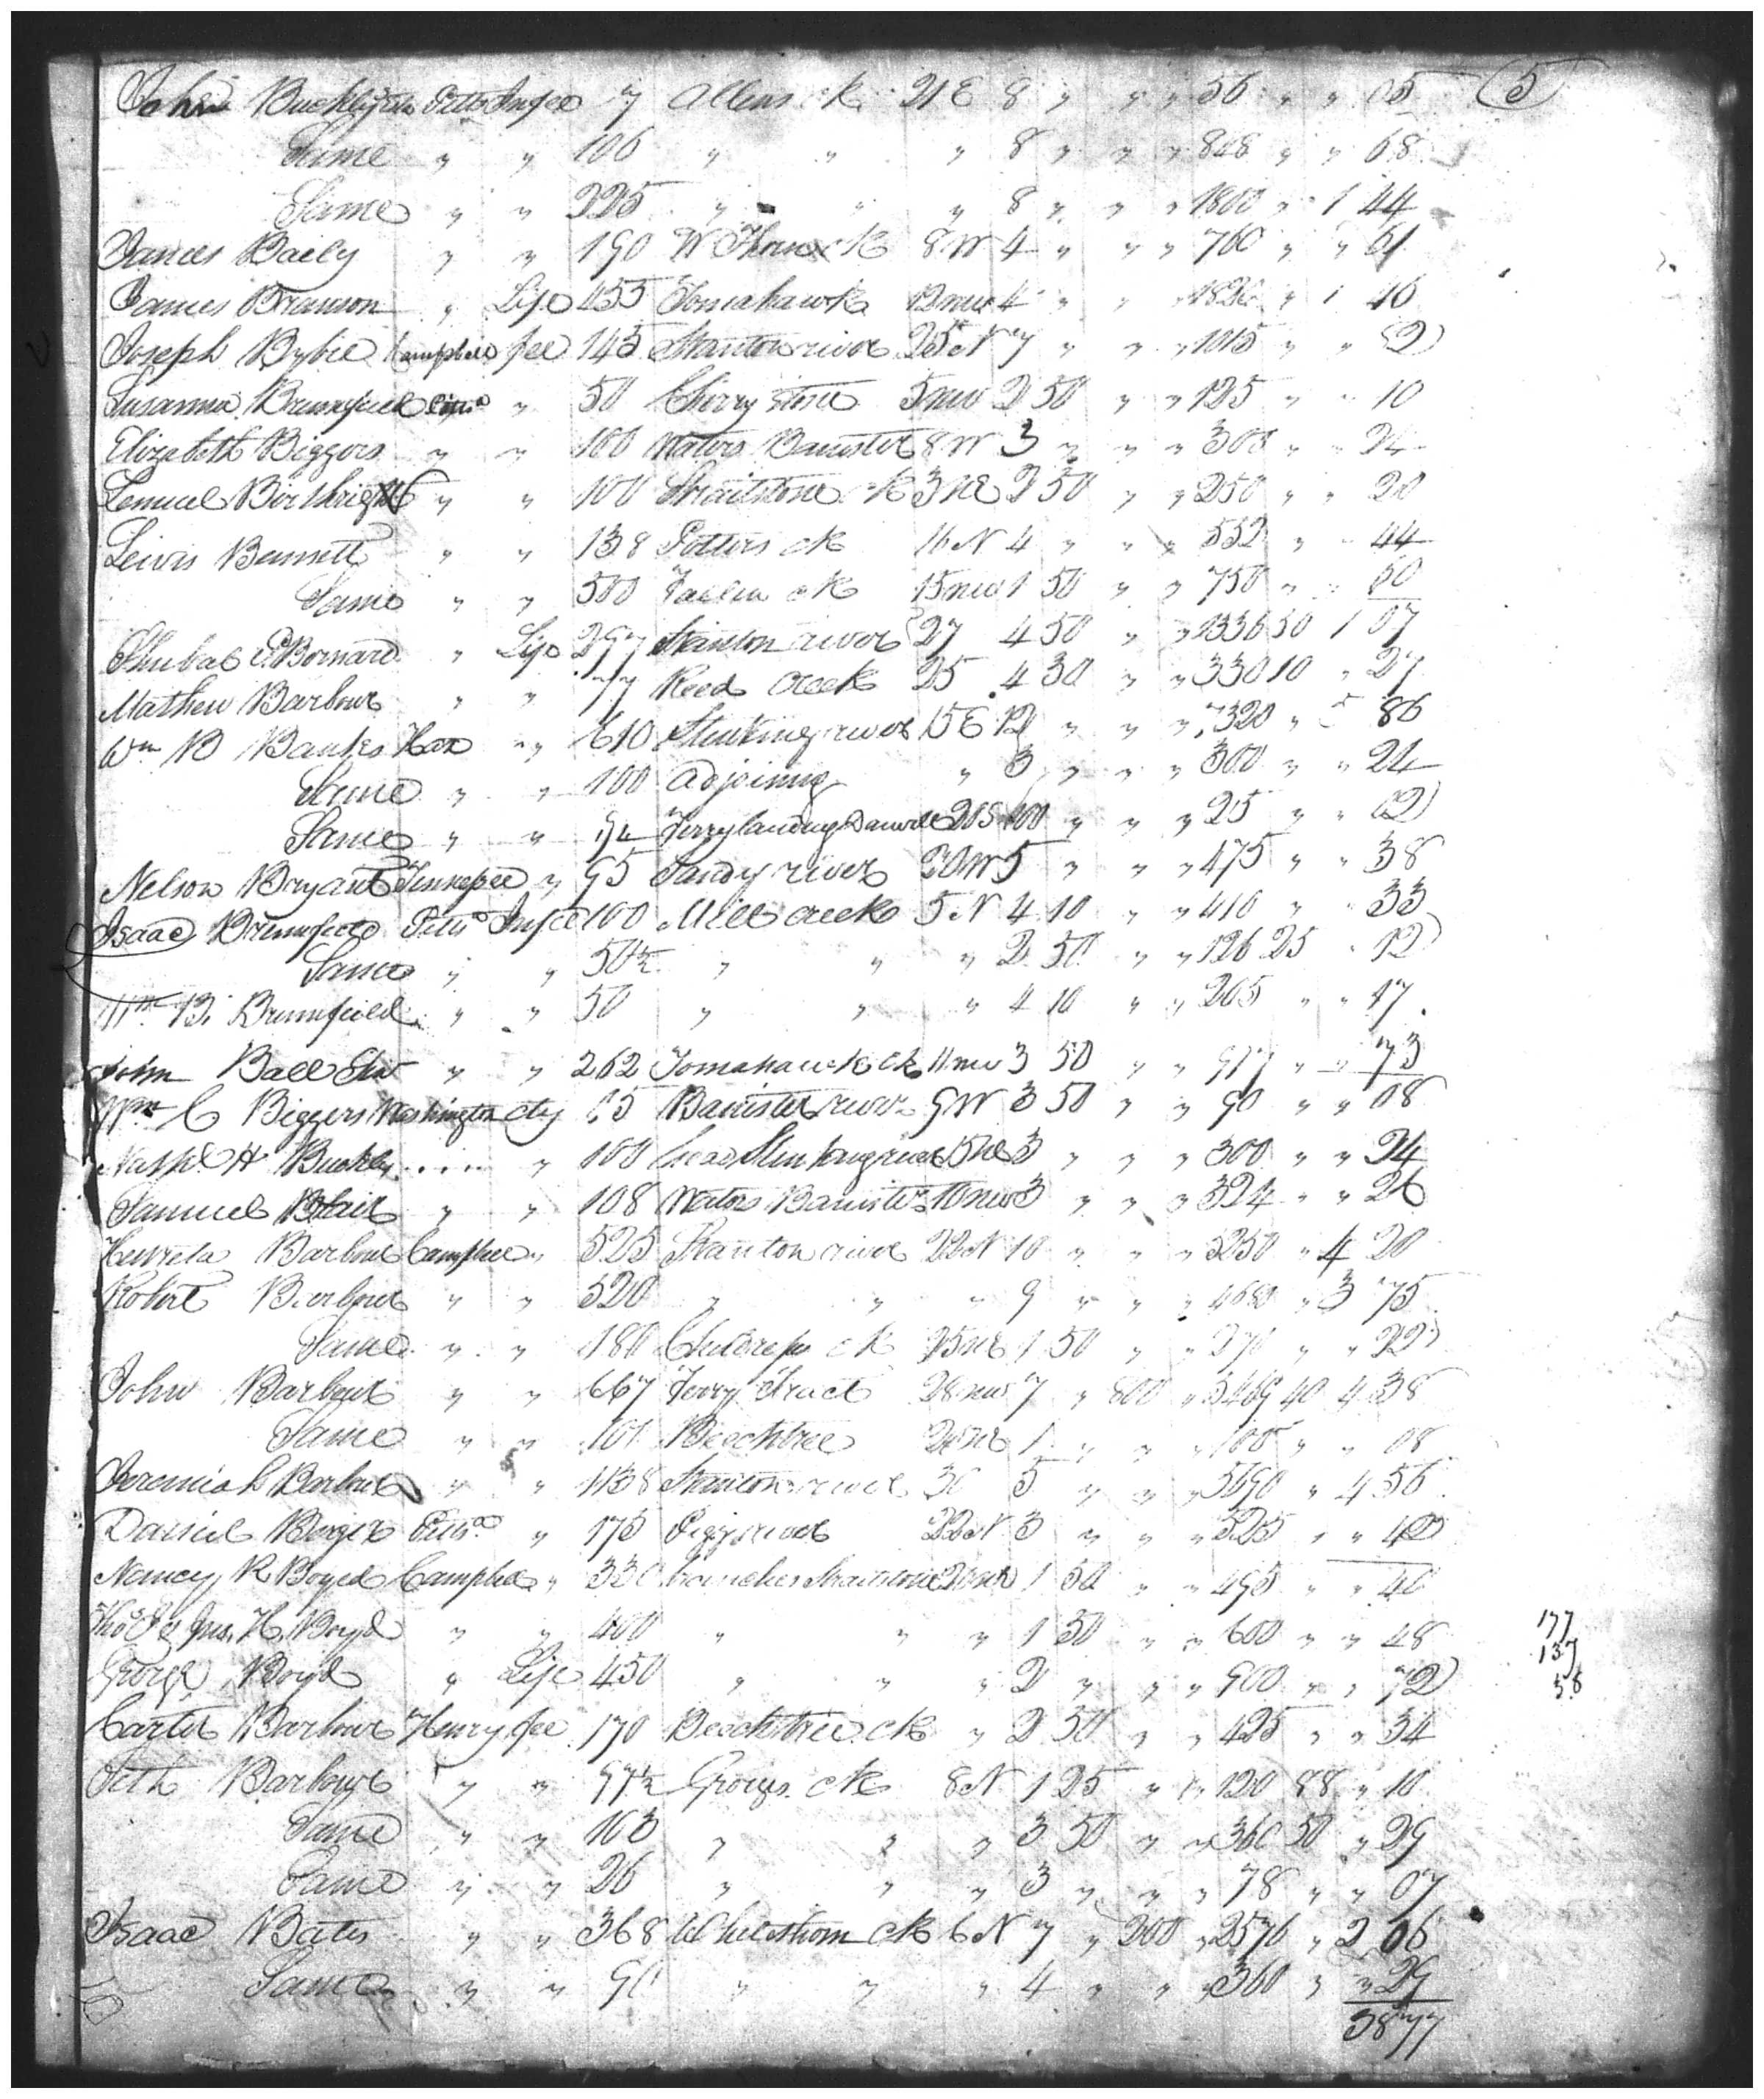 John Buckley Pitts Infee 7 Allens ck 21 E 8 " " " 56 " " 05 5
Same " " 106 " " " 8 " " " 848 " " 68
Same " " 225 " " " 8 " " " 1800 " 1 44
James Baily " " 190 W Thorn ck 8 W 4 " " " 760 " " 61
James Branson " Life 455 Tomahawk 12 nw 4 " " " 1820 " 1 46
Joseph Bybie Campbell fee 145 Stanton river 25 N 7 " " " 1015 " " 82
Susanna Brumfield Pitts " 50 Cherrystone 5 nw 2 50 " " 125 " " 10
Elizabeth Biggers " " 100 Waters Banister 8 W 3 " " " 300 " " 24
Lemuel Birthright " " 100 Straitstone ck 3 NE 2 50 " " 250 " " 20
Lewis Bennett " " 138 Potters ck 16 N 4 " " " 552 " " 44
Same " " 500 ck 15 nw 1 50 " " 750 " " 60
Bernard " Life 297 Stanton river 27 4 50 " " 1336 50 1 07
Mathew Barbour " " 77 Reed Creek 25 4 30 " " 330 10 " 27
Wm B Banks Hax " " 610 Stinking river 15 E 12 " " " 7320 " 5 86
Same " " 100 adjoining " 3 " " " 300 " " 24
Same " " 1/4 Ferry landing Danville 20 S 100 " " " 25 " " 02
Nelson Bryant Tennessee " 95 Sandy river 20 W 5 " " " 475 " " 38
Isaac Brumfield Pitts Infee 100 Mill creek 5 N 4 10 " " 410 " " 33
Same " " 50½ " " " 2 50 " " 126 25 " 12
Wm B. Brumfield " " 50 " " " 4 10 " " 205 " " 17
John Ball Senr " " 262 Tomahawk ck 11 nw 3 50 " " 917 " " 73
Wm C Biggers Washington City Banister river 9 W 3 50 " " 90 " " 08
Nathl H Buckley .... " 100 head Stinking river 15 NE 3 " " " 300 " " 24
Samuel Blair " " 108 Waters Banister 10 nw 3 " " " 324 " " 26
Barbour Campbell " 525 Stanton river 22 N 10 " " " 5250 " 4 20
Robert Barbour " " 520 " " " 9 " " " 4680 " 3 75
Same " " 180 Childress ck 25 NE 1 50 " " 270 " " 22
John Barbour " " 667 Terry Tract 28 nw 7 " 800 " 5469 40 4 38
Same " " Beechtree NE 1 " " " " " 08
Jeremiah Barbour " " 1138 Stanton river 30 5 " " " 5690 " 4 56
Daniel Berger Pitts " 175 Pigg river 22 N 3 " " " 525 " " 42
Nancy R Boyd Campbell " 330 branches Straitstone 20 NE 1 50 " " 495 " " 40
Thos & Jas. H. Boyd " " 400 " " " 1 50 " " 600 " " 48 177
George Boyd " Life 450 " " " 2 " " " 900 " " 72 137
58
Carter Barbour Henry fee 170 Beechtree ck " 2 50 " " 425 " " 34
Seth Barbour " " Georges ck 8 N 1 25 " " 120 88 " 10
Same " " 103 " " " 3 50 " " 360 50 " 29
Same " " 26 " " " 3 " " " 78 " " 07
Isaac Bates " " 368 Whitethorn ck 6 N 7 " 200 " 2576 " 2 06
Same " " 90 " " " 4 " " " 360 " " 29
38 77